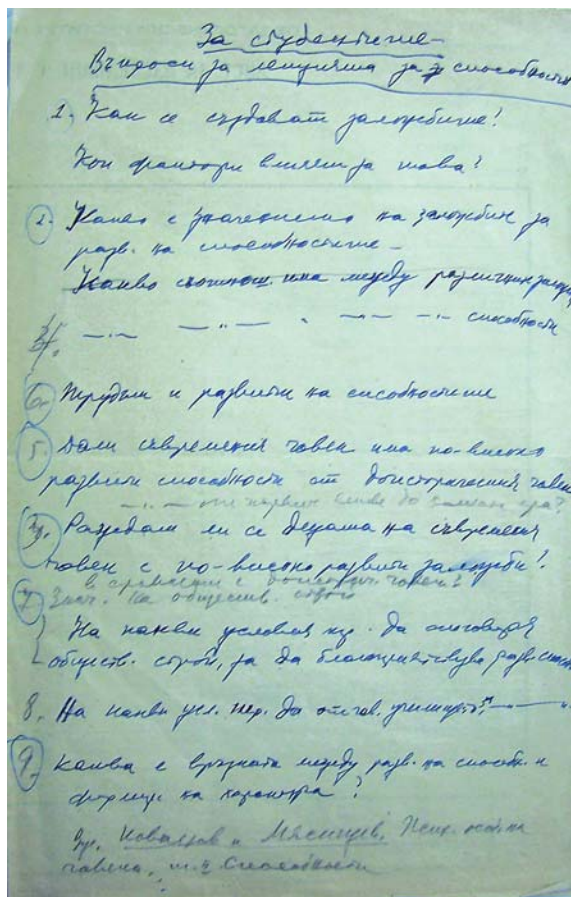 За студентите
Въпроси за лекцията за способности
1. Как се създават заложбите?
Кои фактори влияят за това?
2. Какво е значението на заложбите за
разв. на способностите –
Какво съотнош. има между различни
—"— —"— —"— —"— способности
6. Трудът и развитие на способностите
5. Дали съвременния човек има по-високо
развити способности от доисторическия човек
—"—
3. Раждат ли се децата на съвременния
човек с по-високо развити заложби?
в сравнение с доисторич. човек?
7. Знач. на обществ. строй
На какви условия тр. да отговаря
обществ. строй, за да благоприятствува разв.
8. На какви усл. тр. да отгов. училището? —"—
9. Каква е връзката между разв. на способн. и
формир. на характера?
Ковальов и Мясищев, Псих. особ. на
човека, т. 2 Способности